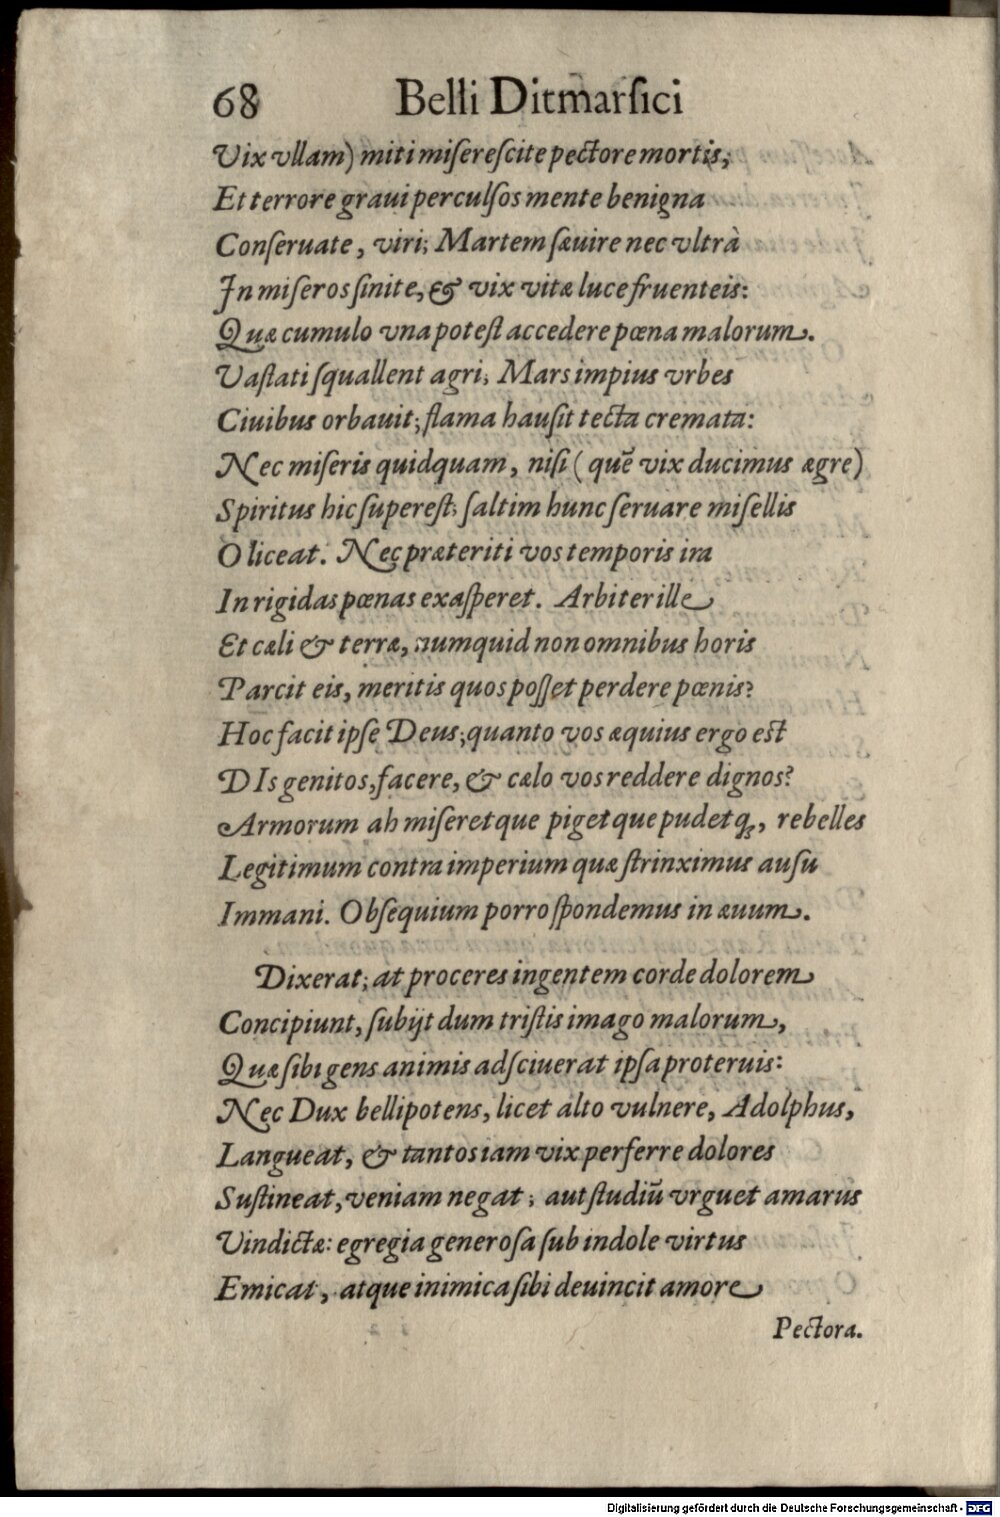 68 Belli Ditmarſici
Vix vllam) miti miſereſcite pectore mortis,
Et terrore graui perculſos mente benigna
Conſeruate, viri; Martem ſæuire nec vltrà
In miſeros ſinite, & vix vitæ luce fruenteis:
Quæ cumulo vna poteſt accedere pœna malorum.
Vaſtati ſquallent agri; Mars impius vrbes
Ciuibus orbauit; flama hauſit tecta cremata:
Nec miſeris quidquam, niſi (quē vix ducimus ægre)
Spiritus hic ſupereſt; ſaltim hunc ſeruare miſellis
O liceat. Nec præteriti vos temporis ira
In rigidas pœnas exaſperet. Arbiter ille
Et cæli & terræ, numquid non omnibus horis
Parcit eis, meritis quos poſſet perdere pœnis?
Hoc facit ipſe Deus; quanto vos æquius ergo est
DIs genitos, facere, & cælo vos reddere dignos?
Armorum ah miseret que piget que pudetq́ꝫ, rebelles
Legitimum contra imperium quæ ſtrinximus auſu
Immani. Obſequium porro ſpondemus in æuum.
Dixerat; at proceres ingentem corde dolorem
Concipiunt, ſubijt dum triſtis imago malorum,
Quæ ſibi gens animis adſciuerat ipſa proteruis:
Nec Dux bellipotens, licet alto vulnere, Adolphus,
Langueat, & tantos iam vix perferre dolores
Suſtineat, veniam negat; aut ſtudiū vrguet amarus
Vindictæ: egregia generoſa ſub indole virtus
Emicat, atque inimica ſibi deuincit amore
Pectora.
Digitalisierung gefördert durch die Deutsche Forschungsgemeinschaft - DFG